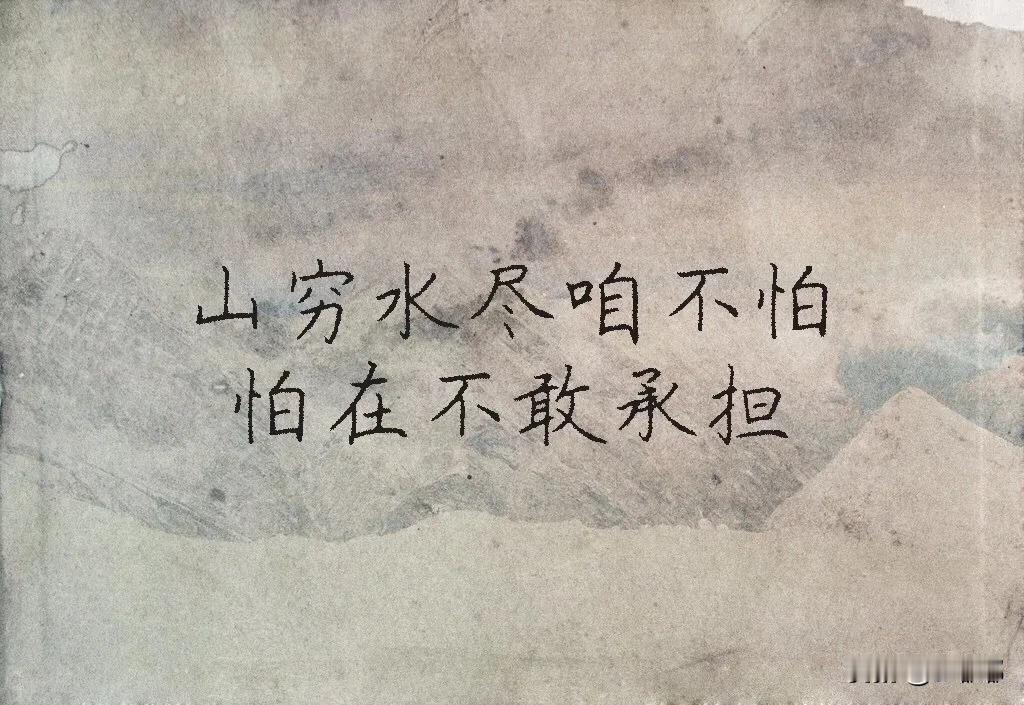 山穷水尽咱不怕
怕在不敢承担